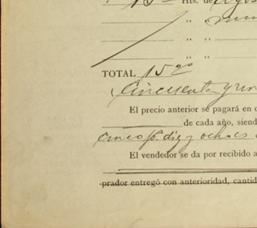 Hts. de
" "
" "
" "
TOTAL 15
Cincuenta y un
El precio anterior se pagará en
de cada año, siend
cinco diez y ocho
El vendedor se da por recibido a
prador entregó con anterioridad, cantid